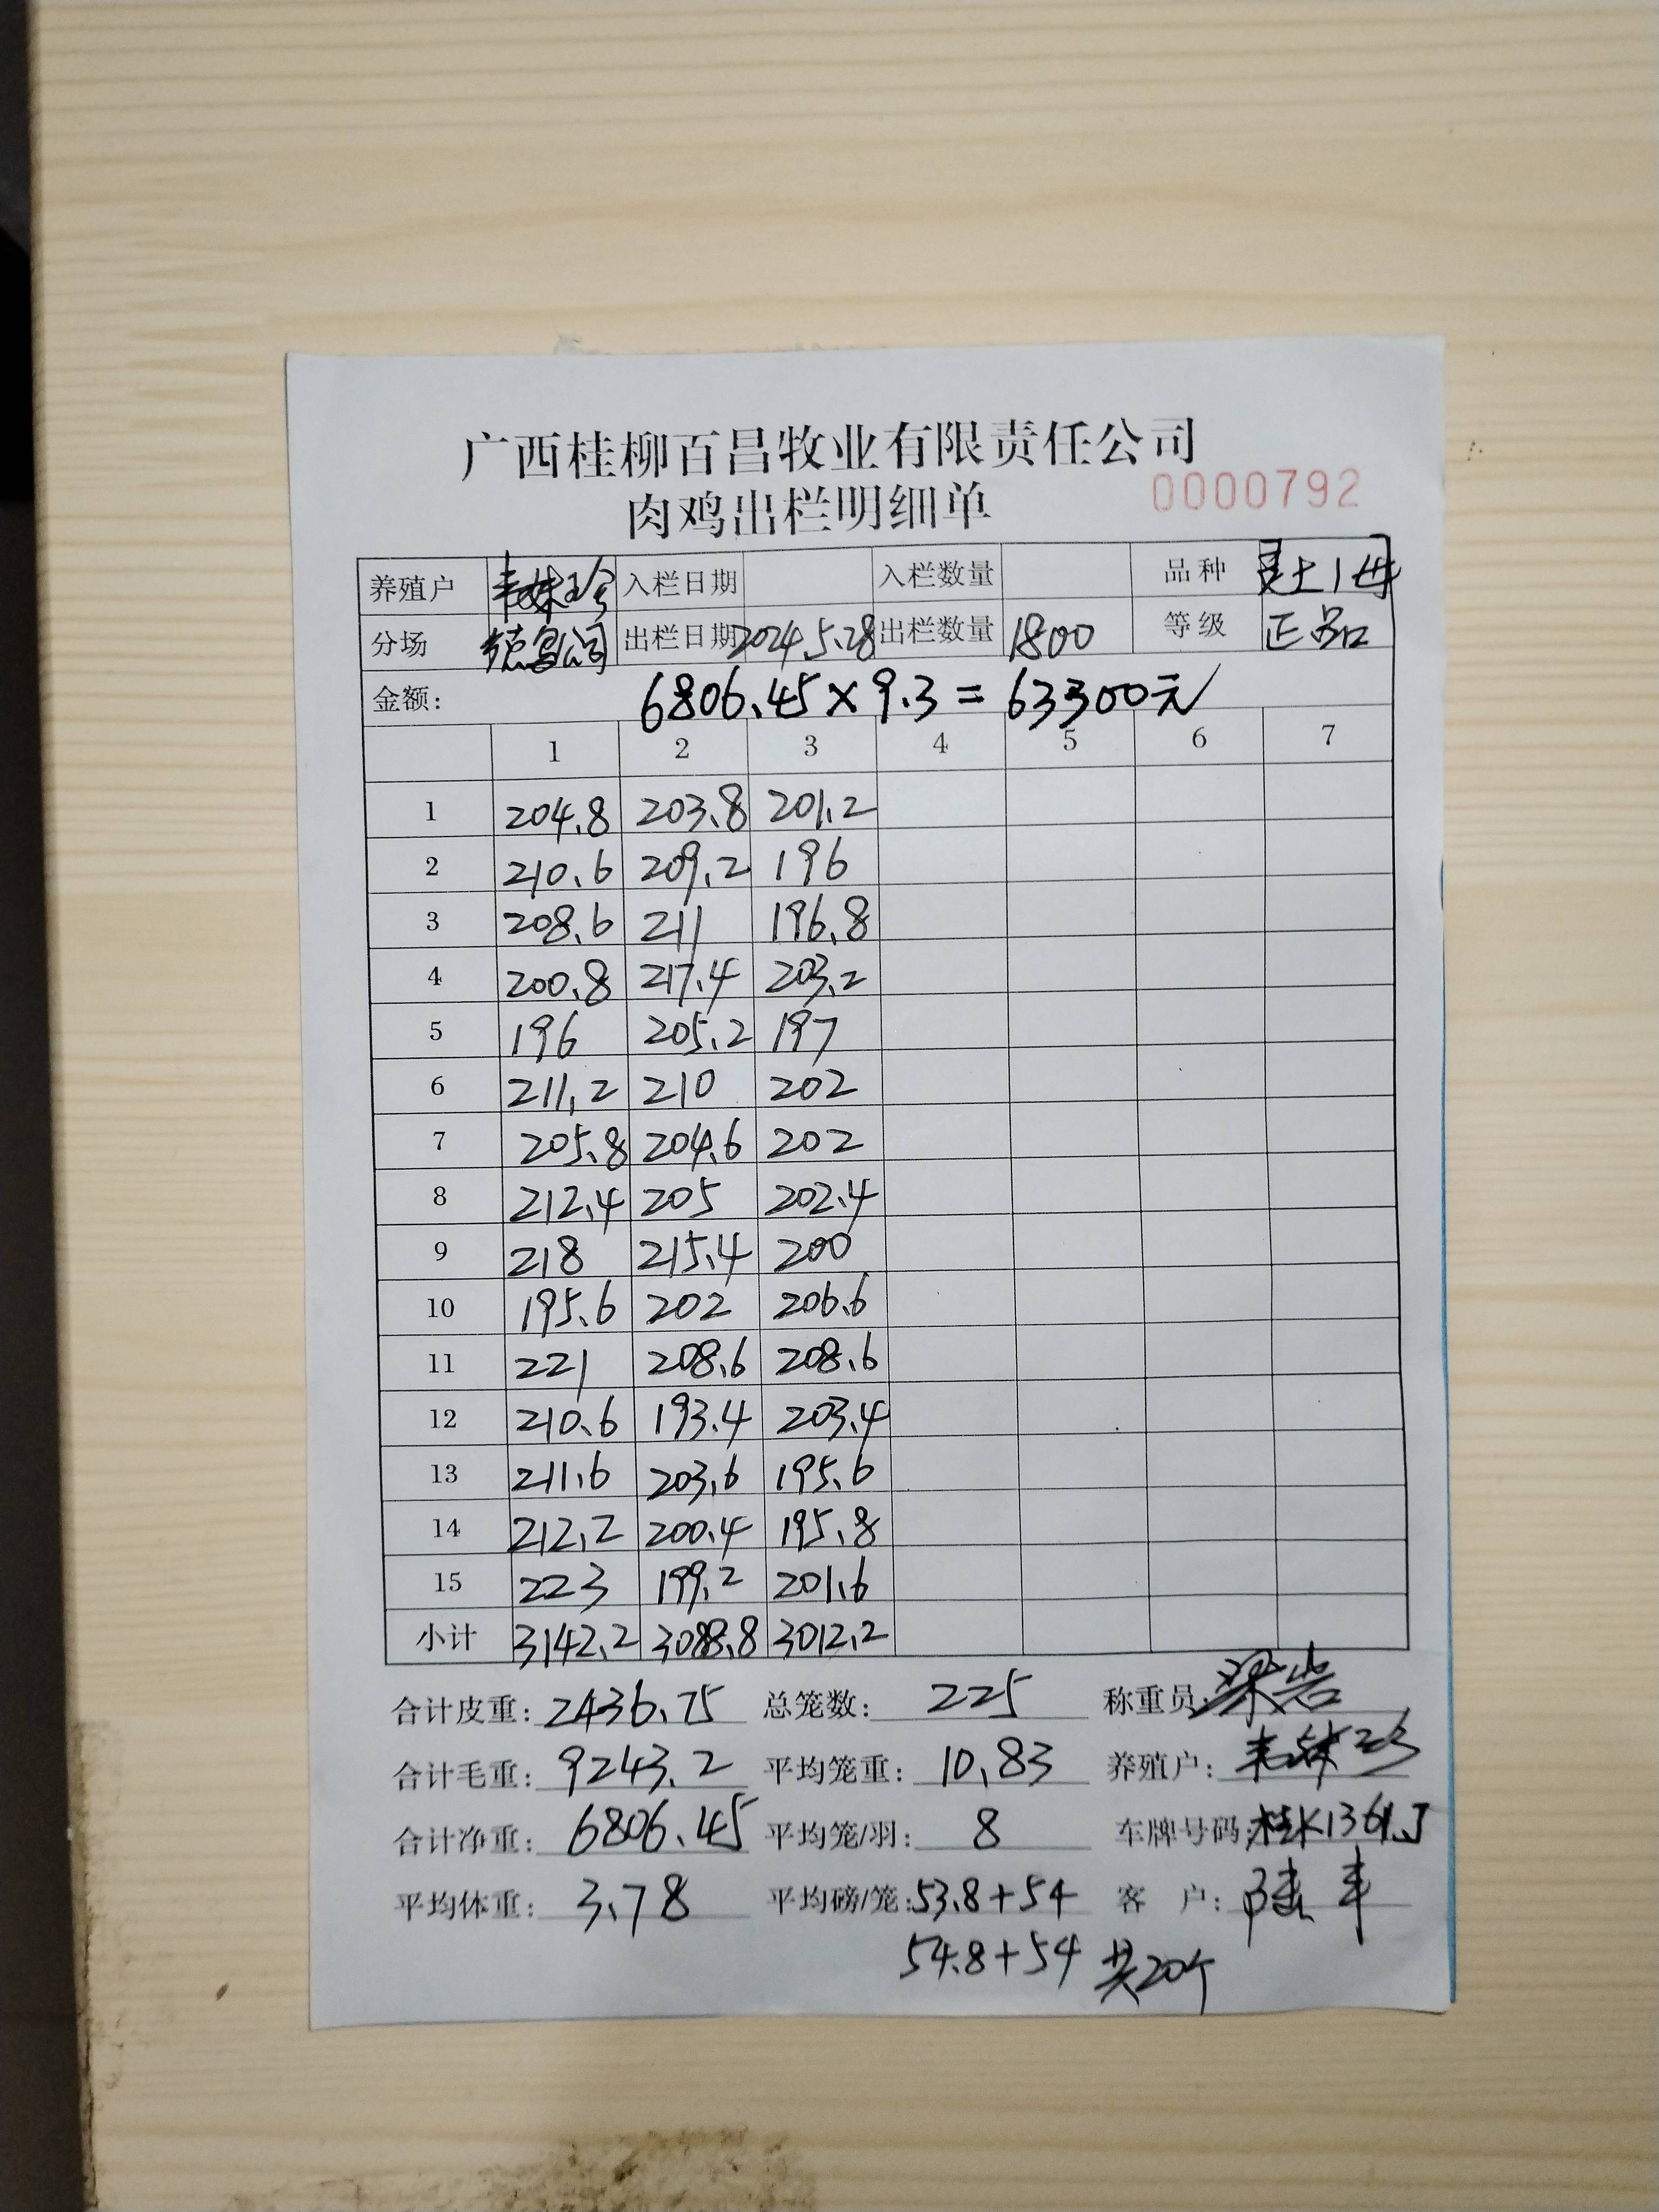 广西桂柳百昌牧业有限责任公司
肉鸡出栏明细单 0000792
养殖户 韦妹珍 入栏日期 入栏数量 品种 土1母
分场 出栏日期 2024.5.28 出栏数量 1800 等级 正品
金额: 6806.45×9.3=63300元
1 2 3 4 5 6 7
1 204.8 203.8 201.2
2 210.6 209.2 196
3 208.6 211 196.8
4 200.8 217.4 203.2
5 196 205.2 197
6 211.2 210 202
7 205.8 204.6 202
8 212.4 205 202.4
9 218 215.4 200
10 195.6 202 206.6
11 221 208.6 208.6
12 210.6 193.4 203.4
13 211.6 203.6 195.6
14 212.2 200.4 195.8
15 223 199.2 201.6
小计 3142.2 3088.8 3012.2
合计皮重: 2436.75 总笼数: 225 称重员: 梁岩
合计毛重: 9243.2 平均笼重: 10.83 养殖户: 韦妹珍
合计净重: 6806.45 平均笼/羽: 8 车牌号码: 桂K1361J
平均体重: 3.78 平均磅/笼: 53.8+54 客 户:
54.8+54 共20个